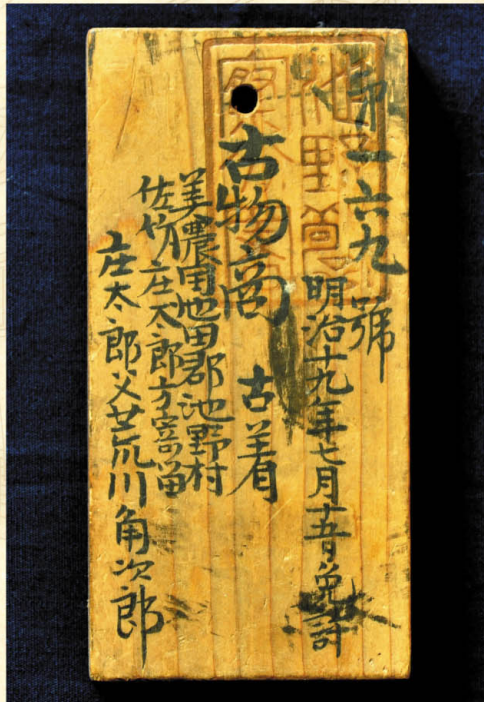 第一六九號
明治十九年七月十五日免許
古物商 古着
美濃国池田郡池野村
佐竹庄太郎方寄留
庄太郎父荒川角次郎